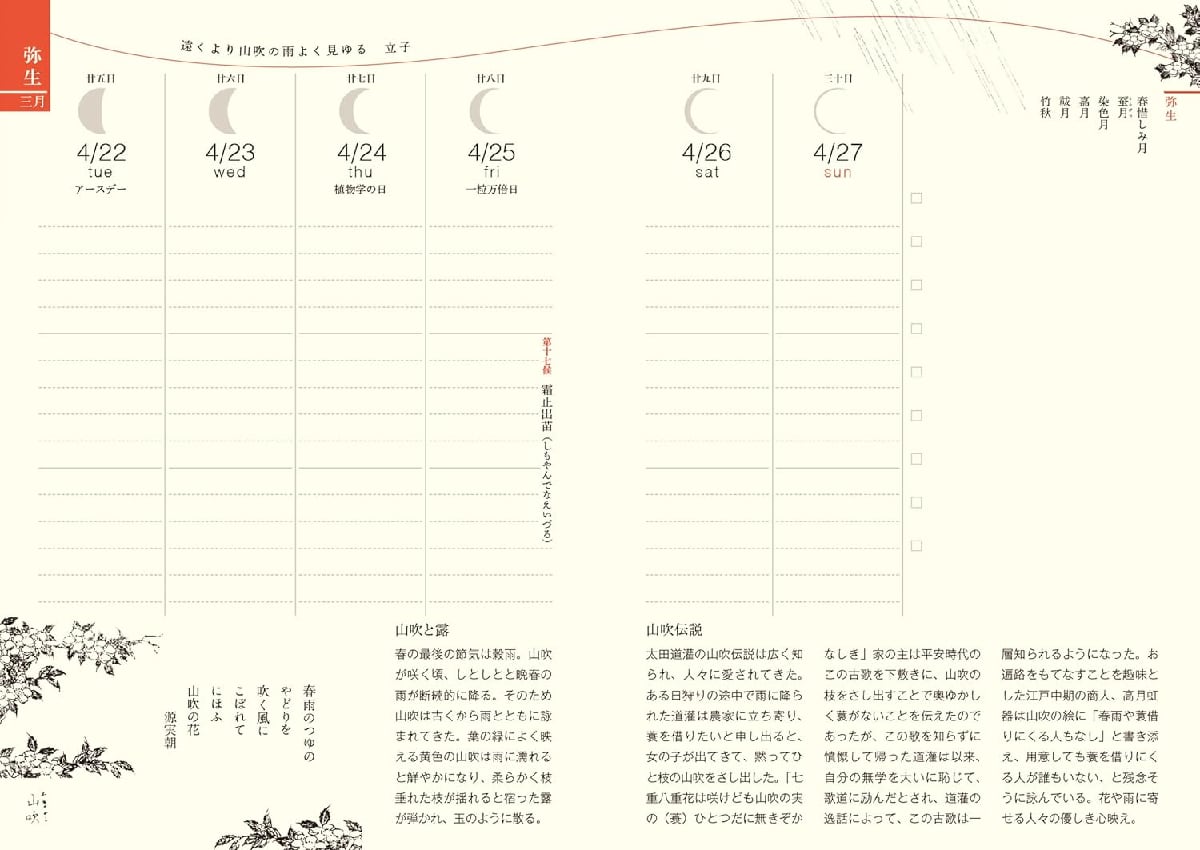 弥生
三月
遠くより山吹の雨よく見ゆる　立子
廿五日
4/22
tue
アースデー
廿六日
4/23
wed
廿七日
4/24
thu
植物学の日
廿八日
4/25
fri
一粒万倍日
第十七候　霜止出苗（しもやんでなえいづる）
廿九日
4/26
sat
三十日
4/27
sun
弥生
春惜しみ月
染色月
嘉月
竹秋
春雨のつゆの
やどりを
吹く風に
こぼれて
にほふ
山吹の花
源実朝
山吹
山吹と露
春の最後の節気は穀雨。山吹
が咲く頃、しとしとと晩春の
雨が断続的に降る。そのため
山吹は古くから雨とともに詠
まれてきた。葉の緑によく映
える黄色の山吹は雨に濡れる
と鮮やかになり、柔らかく枝
垂れた枝が揺れると宿った露
が弾かれ、玉のように散る。
山吹伝説
太田道灌の山吹伝説は広く知
られ、人々に愛されてきた。
ある日狩りの途中で雨に降ら
れた道灌は農家に立ち寄り、
蓑を借りたいと申し出ると、
女の子が出てきて、黙ってひ
と枝の山吹をさし出した。「七
重八重花は咲けども山吹の実
の（蓑）ひとつだに無きぞか
なしき」家の主は平安時代の
この古歌を下敷きに、山吹の
枝をさし出すことで奥ゆかし
く蓑がないことを伝えたので
あったが、この歌を知らずに
憤慨して帰った道灌は以来、
自分の無学を大いに恥じて、
歌道に励んだとされ、道灌の
逸話によって、この古歌は一
層知られるようになった。お
遍路をもてなすことを趣味と
した江戸中期の商人、高月虹
器は山吹の絵に「春雨や蓑借
りにくる人もなし」と書き添
え、用意しても蓑を借りにく
る人が誰もいない、と残念そ
うに詠んでいる。花や雨に寄
せる人々の優しき心映え。